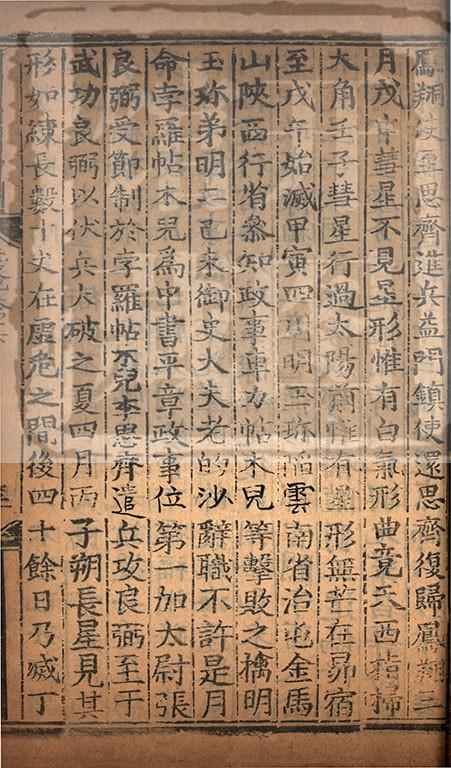 鳳翔使至思齊進兵益門鎮使還思齊復歸鳳翔三
月戊申彗星不見星形惟有白氣形曲竟天西指掃
大角壬子彗星行過太陽前惟有星形無芒在昴宿
至戊午始滅甲寅四川明玉珍陷雲南省治屯金馬
山陝西行省參知政事車力帖木兒等擊敗之擒明
玉珍弟明二己未御史大夫老的沙辭職不許是月
命孛羅帖木兒爲中書平章政事位第一加太尉張
良弼受節制於孛羅帖木兒李思齊遣兵攻良弼至于
武功良弼以伏兵大破之夏四月丙子朔長星見其
形如練長數十丈在虛危之間後四十餘日乃滅丁